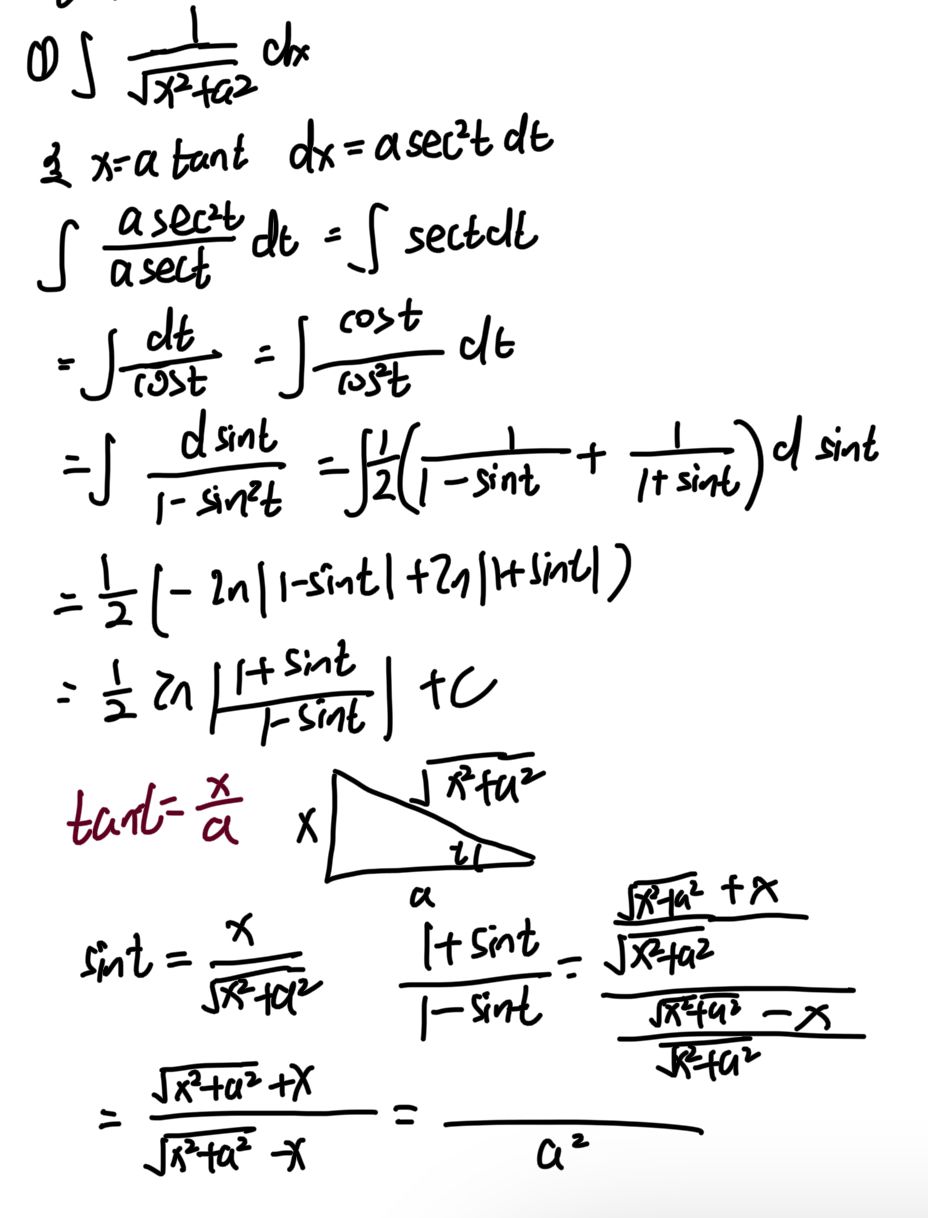 ① ∫ 1/√(x²+a²) dx
令 x=a tant dx=a sec²t dt
∫ (a sec²t)/(a sect) dt = ∫ sect dt
= ∫ dt/cost = ∫ cost/cos²t dt
= ∫ d sint/(1-sin²t) = ∫ 1/2 (1/(1-sint) + 1/(1+sint)) d sint
= 1/2 (- ln|1-sint| + ln|1+sint|)
= 1/2 ln |(1+sint)/(1-sint)| + C
tant = x/a x √(x²+a²) t a
sint = x/√(x²+a²) (1+sint)/(1-sint) = ((√(x²+a²) +x)/√(x²+a²))/((√(x²+a²) -x)/√(x²+a²))
= (√(x²+a²) +x)/(√(x²+a²) -x) = /a²